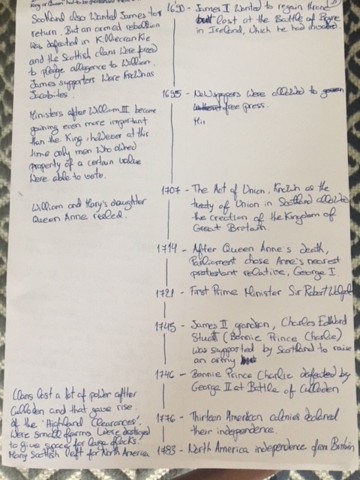 Scotland also wanted James to
return. But an armed rebellion
was defeated in Killiecrankie
and the Scottish clans were forced
to pledge allegiance to William.
James supporters were known as
Jacobites.
Ministers after William III became
gaining even more important
than the King, however at this
time only men who owned
property of a certain value
were able to vote.
William and Mary's daughter
Queen Anne reeled.
Clans lost a lot of power after
Culloden and that gave rise
of the 'Highland Clearances'.
Were small farms were destroyed
to give space for large flocks.
Many Scottish left for North America
1690 - James II wanted to regain throne
but lost at the Battle of Boyne
in Ireland, which he had
1695 - Newspapers were allowed to
free press.
1707 - The Act of Union, known as the
treaty of Union in Scotland allowed
the creation of the Kingdom of
Great Britain.
1714 - After Queen Anne's death,
Parliament chose Anne's nearest
protestant relative, George I.
1721 - First Prime Minister Sir Robert Walpole
1745 - James II grandson, Charles Edward
Stuart (Bonnie Prince Charlie)
was supported by Scotland to raise
an army
1746 - Bonnie Prince Charlie defeated by
George II at Battle of Culloden
1776 - Thirteen American colonies declared
their independence.
1783 - North America independence from Britain